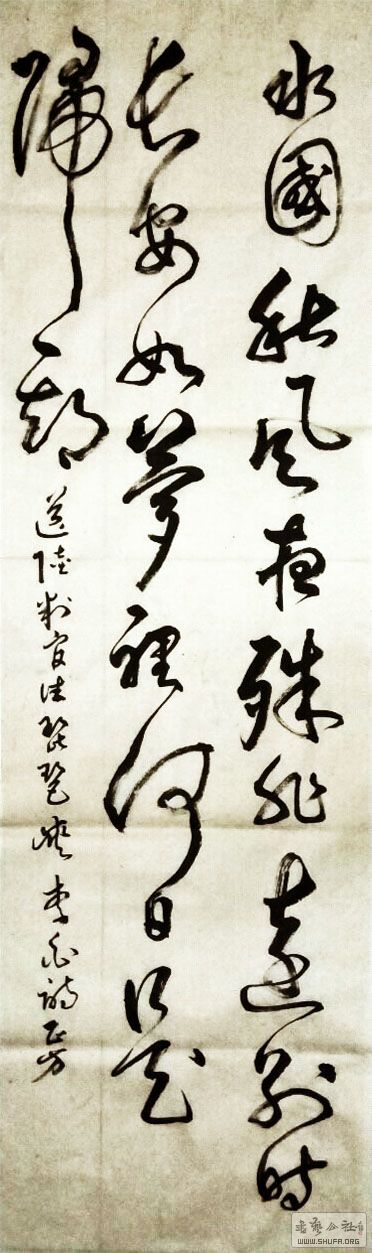 水國秋風夜殊非遠別時
長安如夢裡何日是
歸期
送陸判官往琵琶峽 李白詩
书艺公社
WWW.SHUFA.ORG